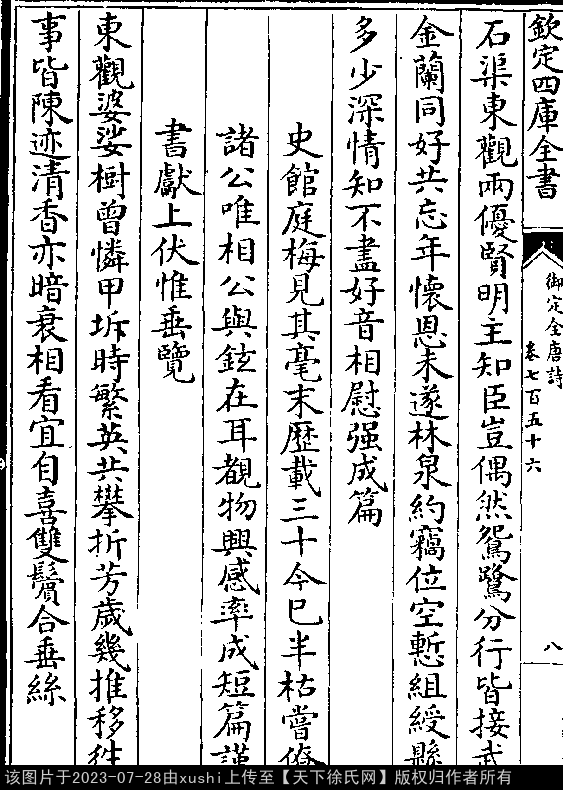 欽定四庫全書
御定全唐詩
卷七百五十六
八
石渠東觀兩優賢明主知臣豈偶然鴛鷺分行皆接武
金蘭同好共忘年懷恩未遂林泉約竊位空慙組綬縣
多少深情知不盡好音相慰强成篇
史館庭梅見其毫末歴載三十今已半枯嘗僚
諸公唯相公與鉉在耳覩物興感率成短篇謹
書獻上伏惟垂覽
東觀婆娑樹曾憐甲坼時繁英共攀折芳歲幾推移往
事皆陳迹清香亦暗衰相看宜自喜雙鬢合垂絲
该图片于2023-07-28由xushi上传至【天下徐氏网】版权归作者所有